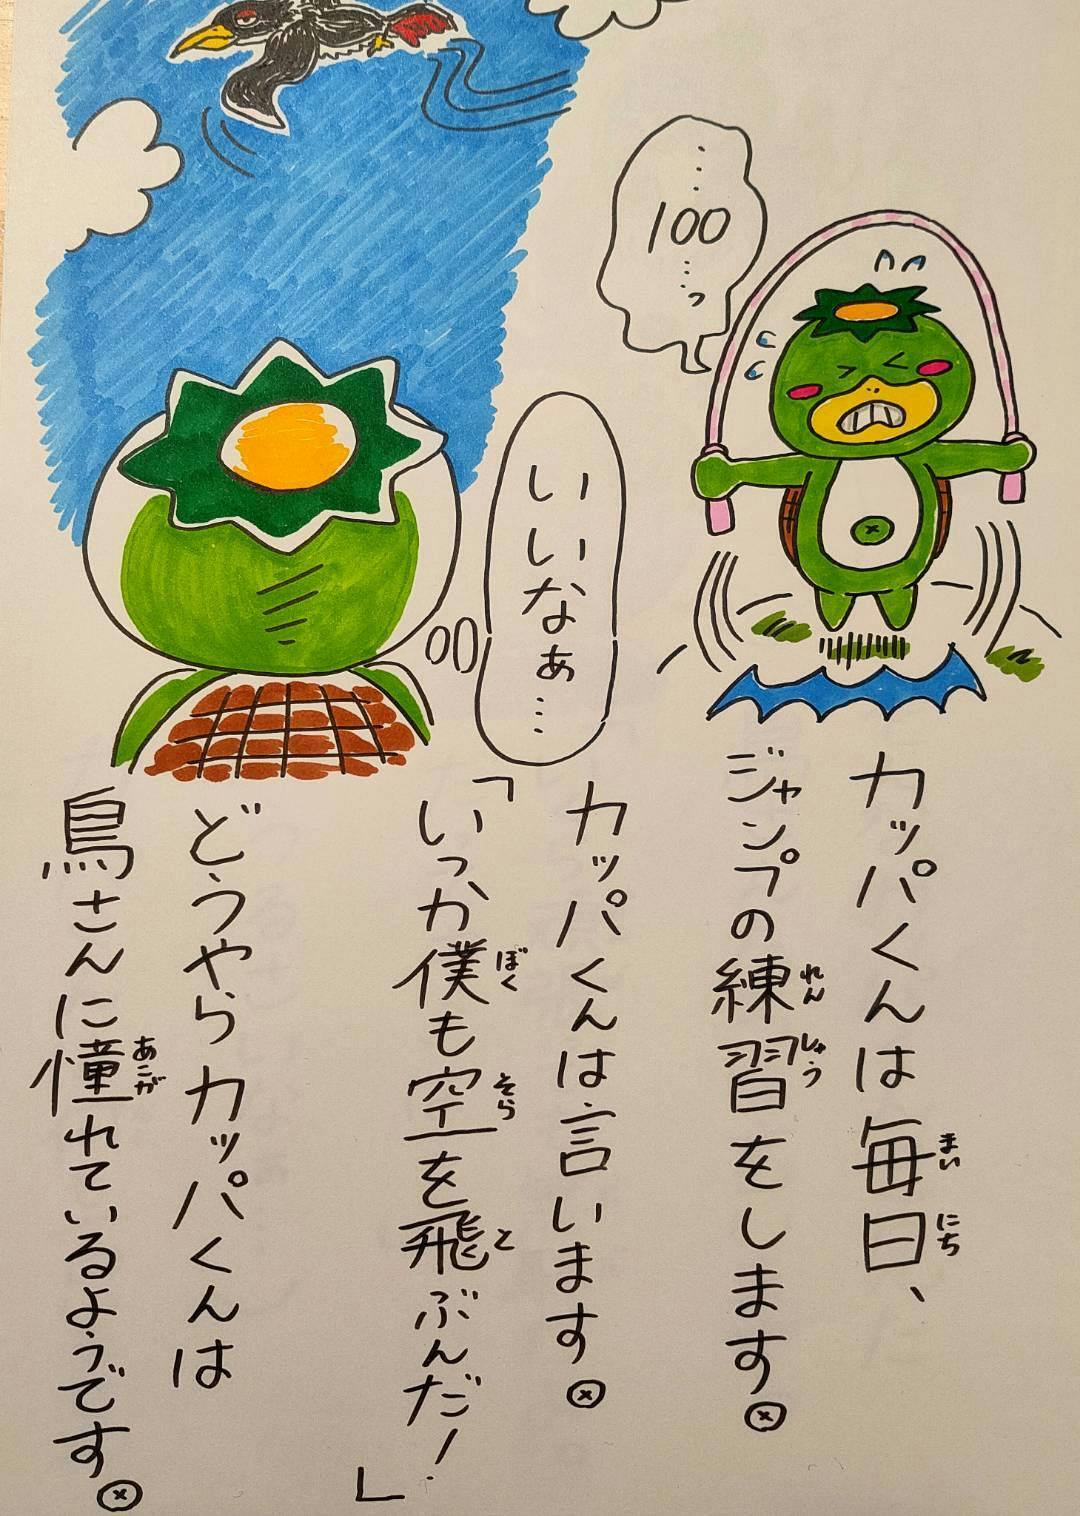 …100…っ
カッパくんは毎日、
まいにち
ジャンプの練習をします。
れんしゅう
いいなぁ…
カッパくんは言います。
「いつか僕も空を飛ぶんだ!」
ぼく そら と
どうやらカッパくんは
鳥さんに憧れているようです。
あこが